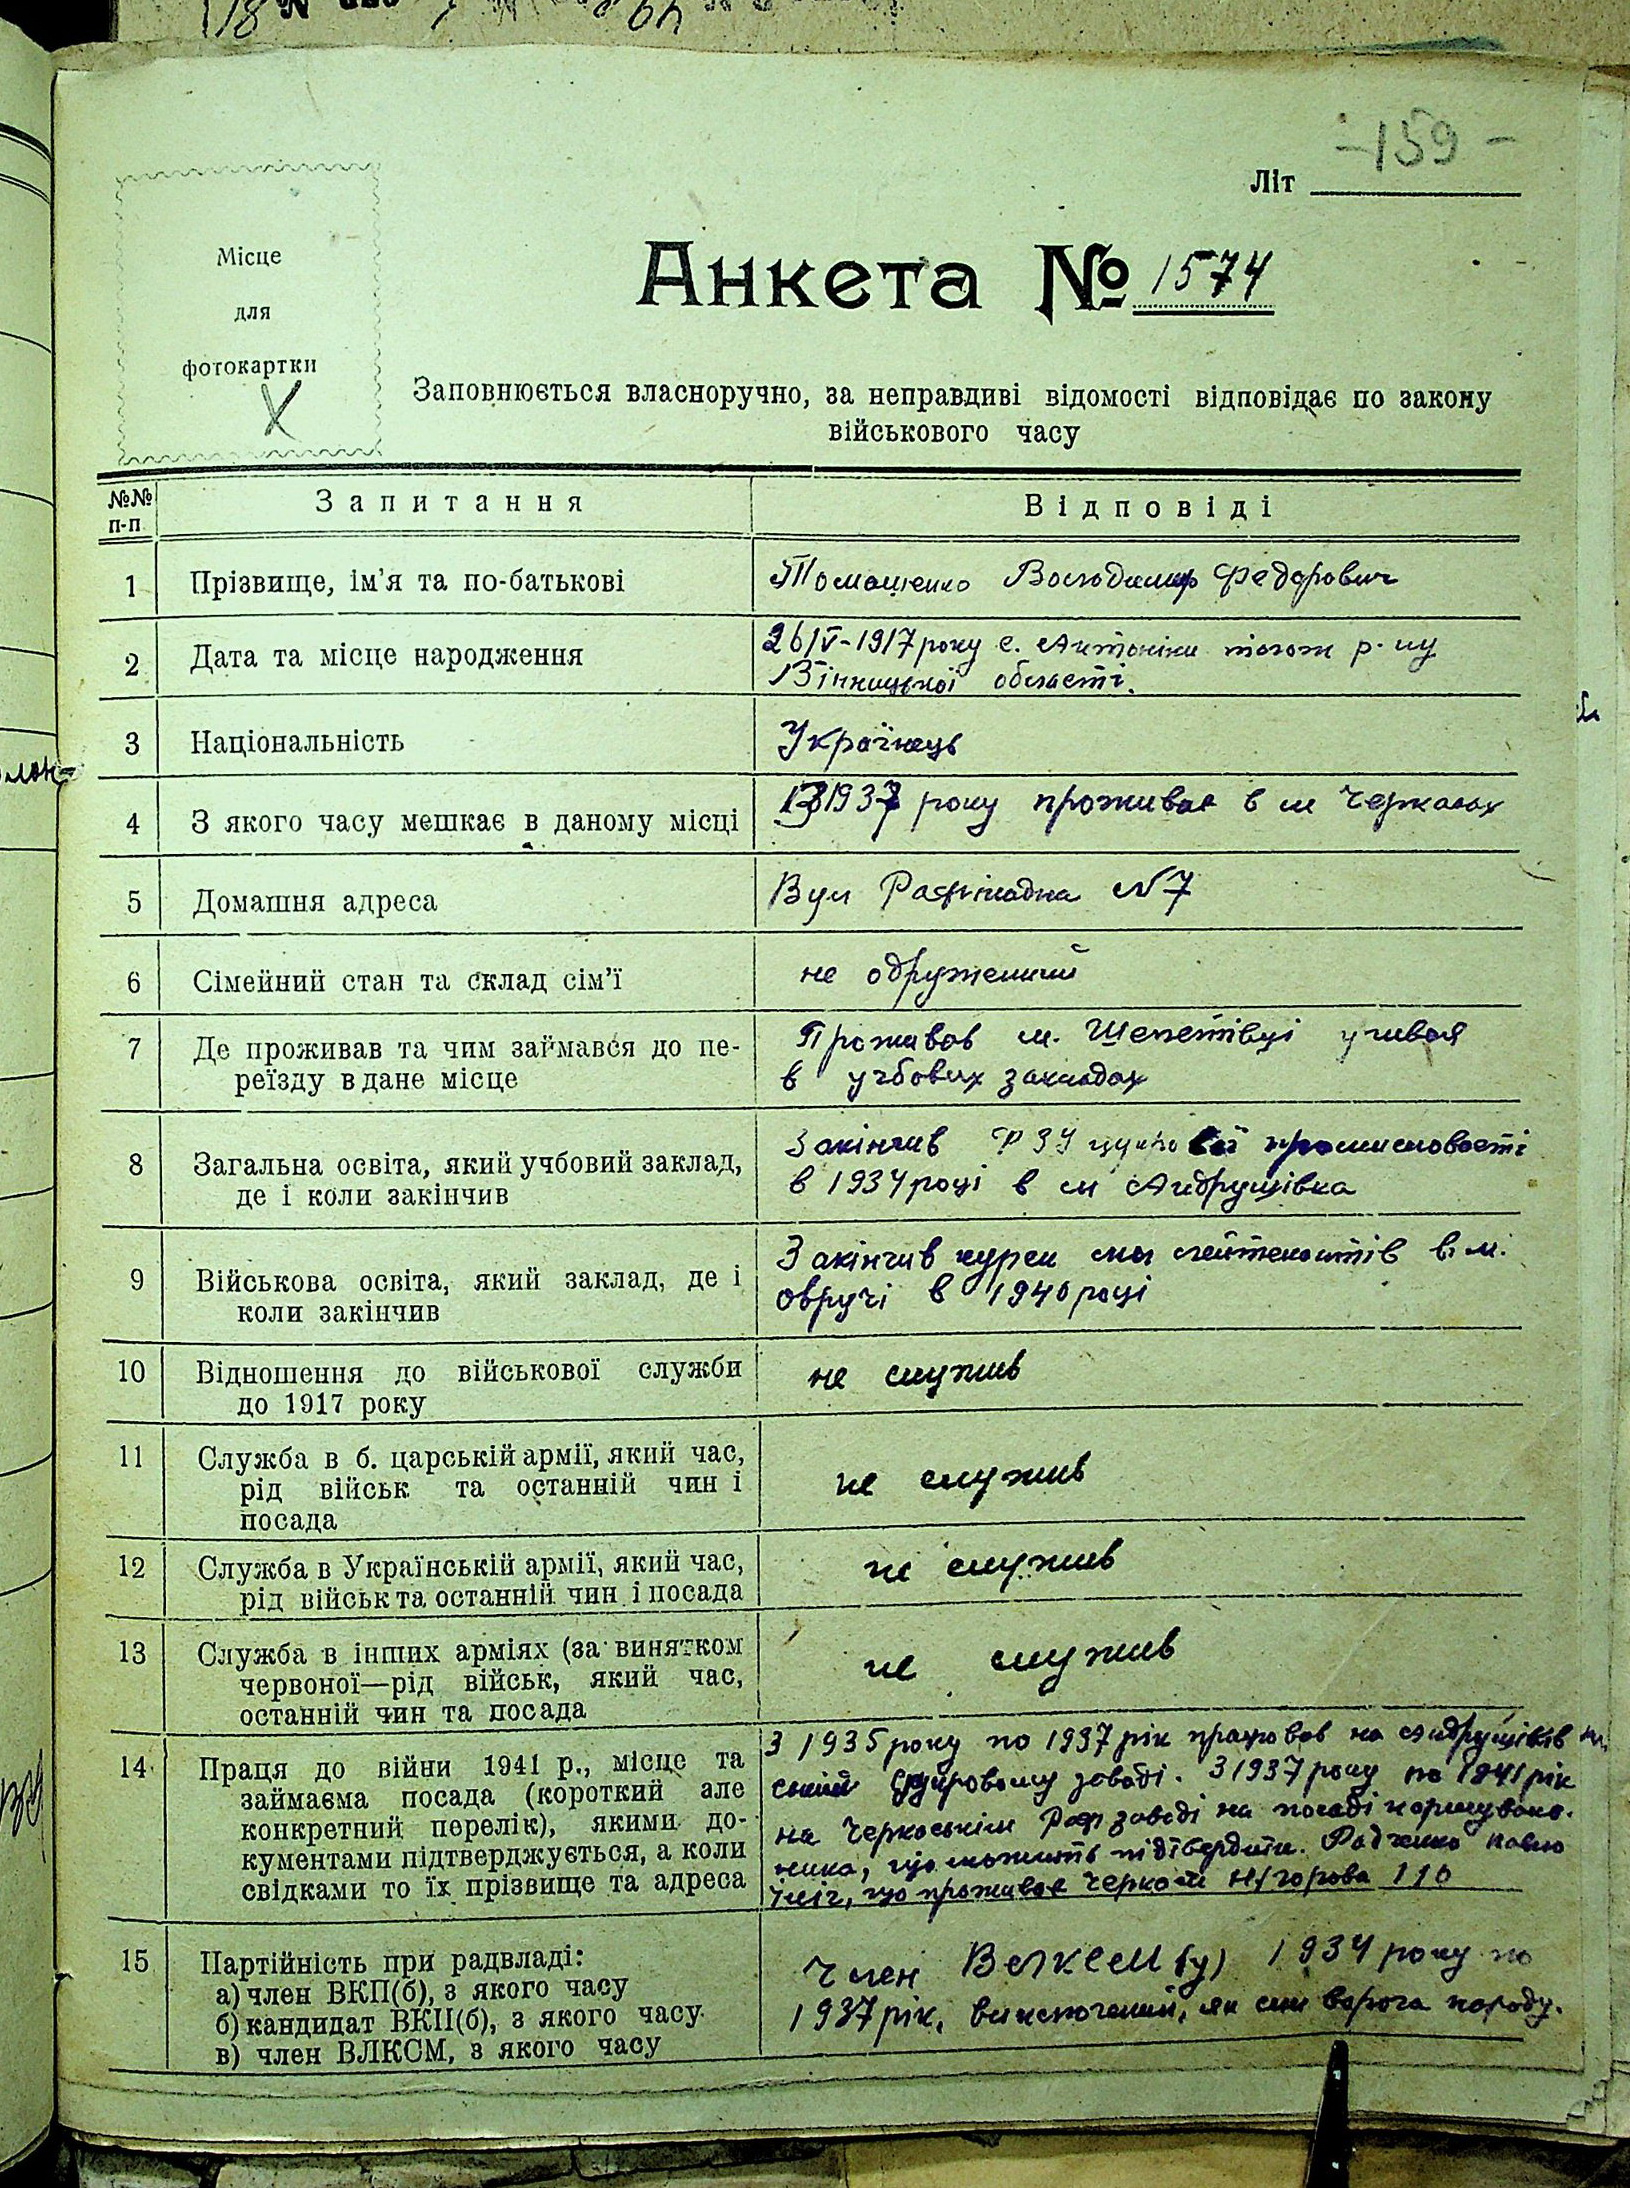 -159-
Літ
Місце
для
фотокартки
Анкета № 1574
Заповнюється власноручно, за неправдиві відомості відповідає по закону
військового часу
№№ п-п Запитання Відповіді
1 Прізвище, ім'я та по-батькові Томашенко Володимир Федорович
2 Дата та місце народження 26/V-1917 року с. Антоніни тогож р-ну
Вінницької області.
3 Національність Українець
4 З якого часу мешкає в даному місці 1937 року проживає в м Черкасах
5 Домашня адреса Вул Рафінадна №7
6 Сімейний стан та склад сім'ї не одружений
7 Де проживав та чим займався до пе- Проживав м. Шепетівці учився
реїзду в дане місце в учбових закладах
8 Загальна освіта, який учбовий заклад, Закінчив ФЗУ цукрової промисловості
де і коли закінчив в 1934 році в м Андрушівка
9 Військова освіта, який заклад, де і Закінчив курси мол лейтенантів в м.
коли закінчив Овручі в 1940 році
10 Відношення до військової служби не служив
до 1917 року
11 Служба в б. царській армії, який час, не служив
рід військ та останній чин і
посада
12 Служба в Українській армії, який час, не служив
рід військ та останній чин і посада
13 Служба в інших арміях (за винятком не служив
червоної—рід військ, який час,
останній чин та посада
14 Праця до війни 1941 р., місце та З 1935 року по 1937 рік працював на Андрушівсь
займаєма посада (короткий але цукровому заводі. З 1937 року по 1941 рік
конкретний перелік), якими до- на Черкаськім Раф заводі на посаді нормуваль-
кументами підтверджується, а коли ника, що можить підтвердити. Радченко Павло
свідками то їх прізвище та адреса що проживає Черкаси 110
15 Партійність при радвладі: Член ВЛКСМ(у) 1934 року по
а) член ВКП(б), з якого часу 1937 рік, виключений, як син ворога народу.
б) кандидат ВКП(б), з якого часу
в) член ВЛКСМ, з якого часу